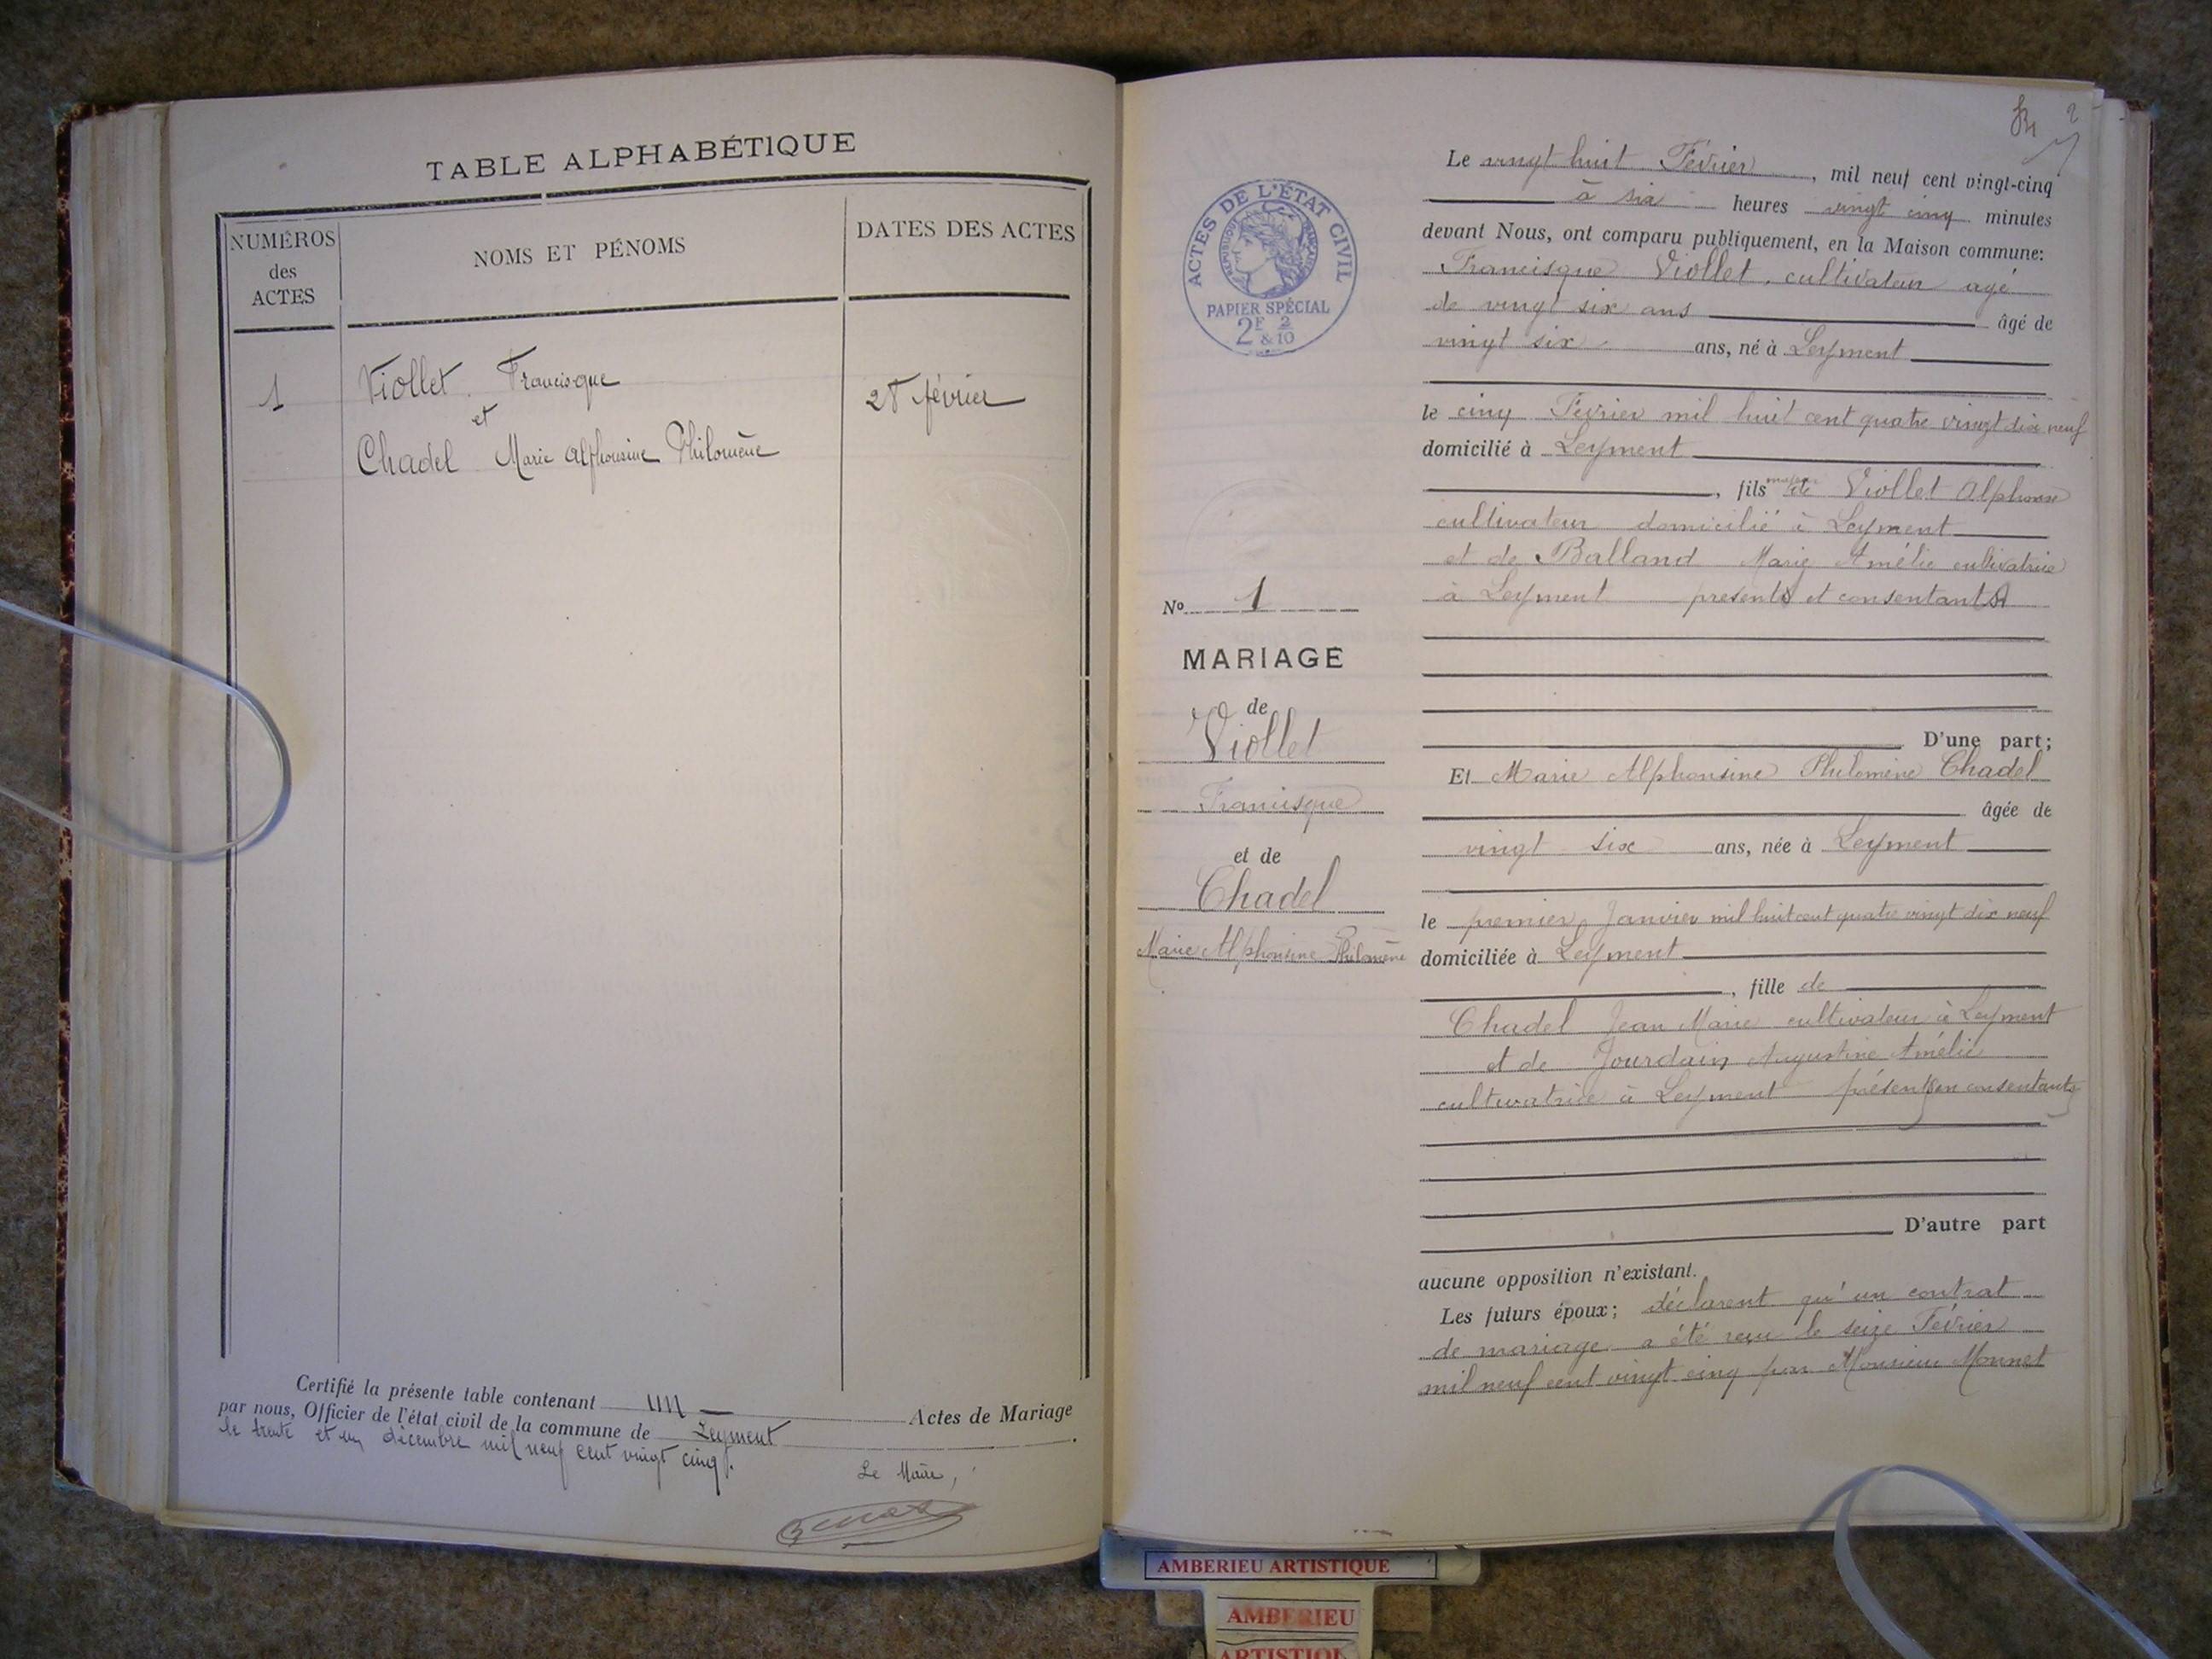 TABLE ALPHABÉTIQUE
NUMÉROS
des
ACTES
NOMS ET PÉNOMS
DATES DES ACTES
1
Viollet Francisque
et
Chadel Marie Alphonsine Philomène
28 février
Certifié la présente table contenant un Actes de Mariage
par nous, Officier de l'état civil de la commune de Leyment
le trente et un décembre mil neuf cent vingt cinq.
Le Maire,
2
ACTES DE L'ÉTAT CIVIL
RÉPUBLIQUE FRANÇAISE
PAPIER SPÉCIAL
2F & 2/10
No 1
MARIAGE
de
Viollet
Francisque
et de
Chadel
Marie Alphonsine Philomène
Le vingt huit Février, mil neuf cent vingt-cinq
à six heures vingt cinq minutes
devant Nous, ont comparu publiquement, en la Maison commune:
Francisque Viollet, cultivateur agé
de vingt six ans âgé de
vingt six ans, né à Leyment
le cinq Février mil huit cent quatre vingt dix neuf
domicilié à Leyment
, fils majeur de Viollet Alphonse
cultivateur domicilié à Leyment
et de Balland Marie Amélie cultivatrice
à Leyment presents et consentants
D'une part;
Et Marie Alphonsine Philomène Chadel
âgée de
vingt six ans, née à Leyment
le premier Janvier mil huit cent quatre vingt dix neuf
domiciliée à Leyment
, fille de
Chadel Jean Marie cultivateur à Leyment
et de Jourdain Augustine Amélie
cultivatrice à Leyment présents en consentants
D'autre part
aucune opposition n'existant.
Les futurs époux; déclarent qu'un contrat
de mariage a été reçu le seize Février
mil neuf cent vingt cinq par Monsieur Monnet
AMBERIEU ARTISTIQUE
AMBERIEU
ARTISTIQUE